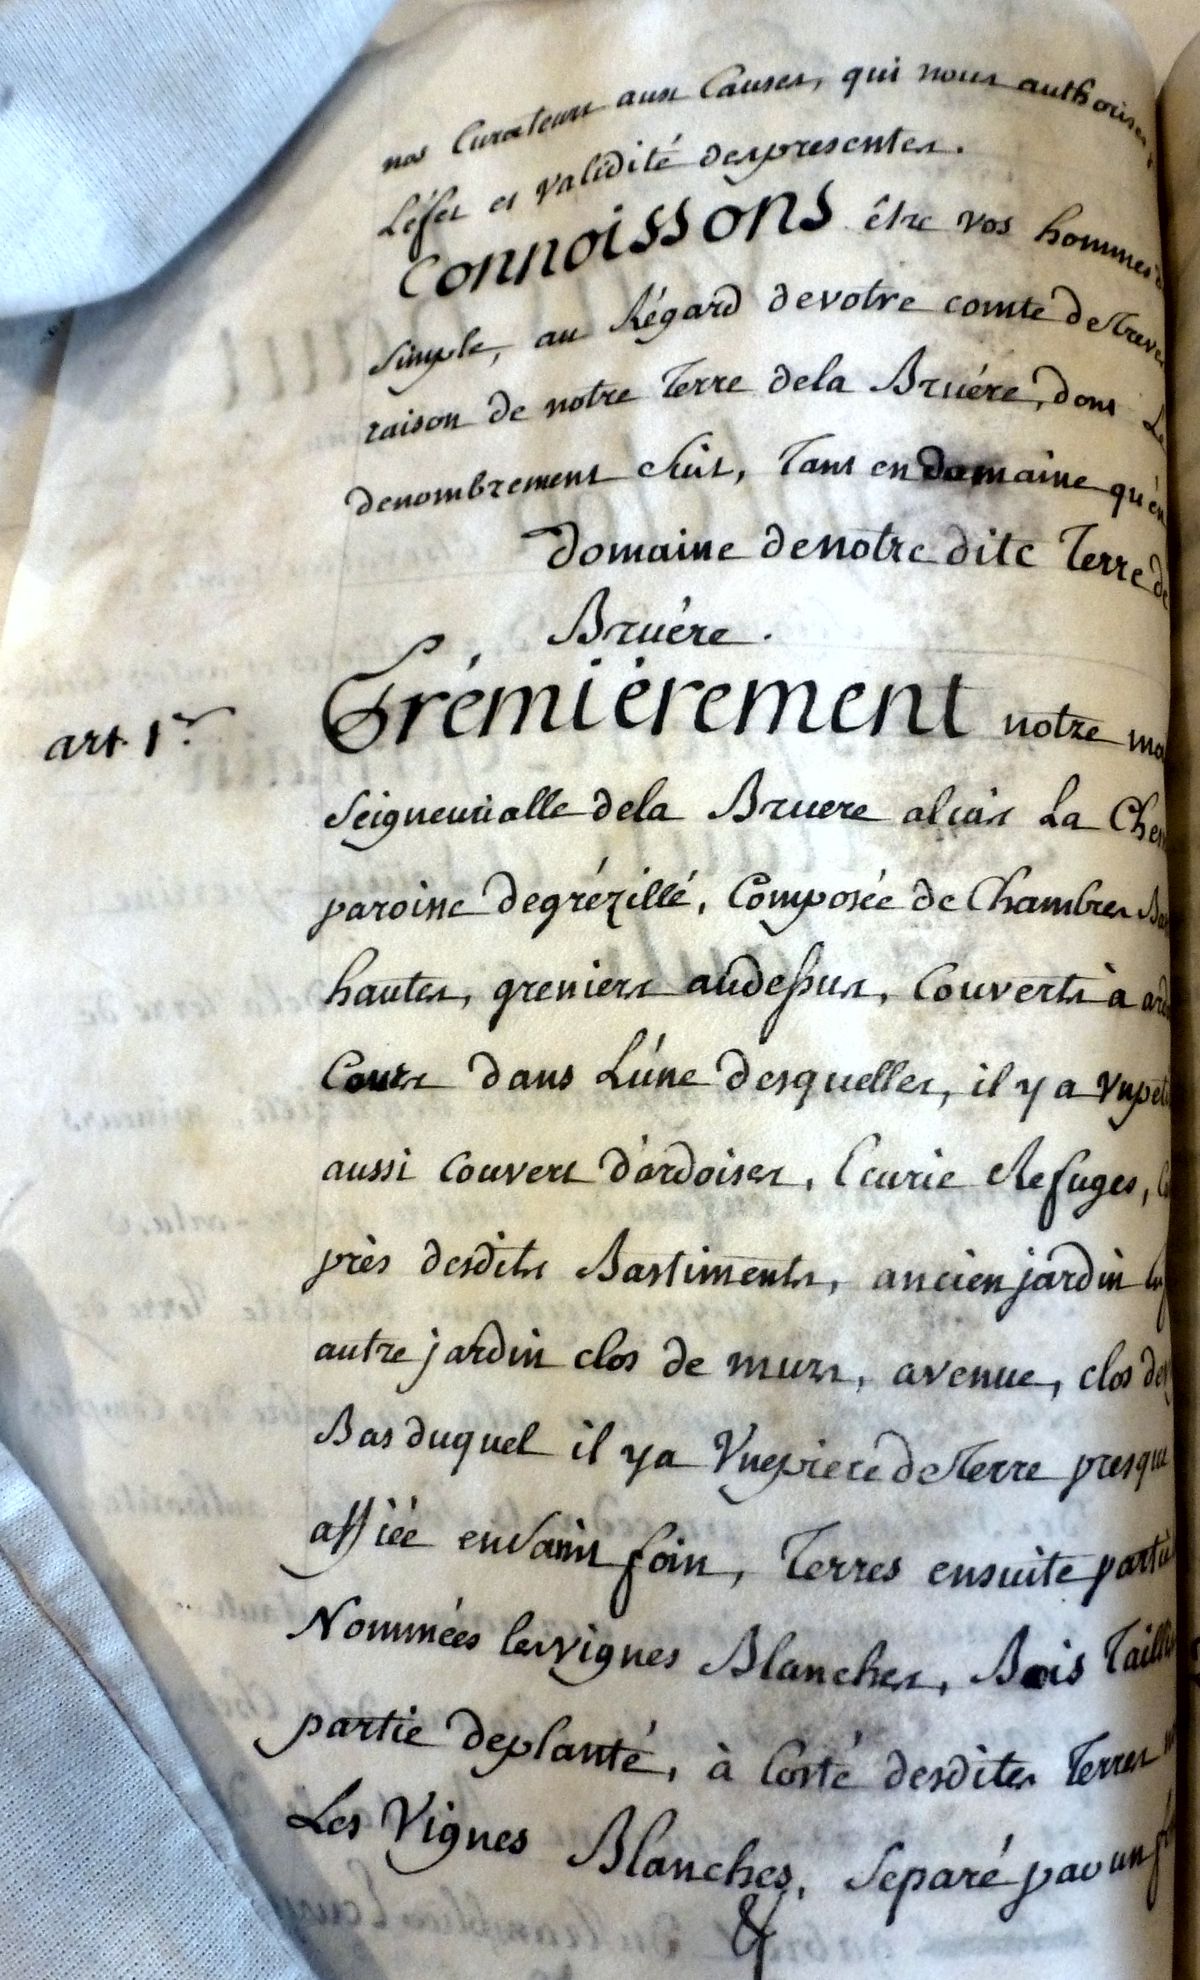 nos Curateurs aux Causes, qui nous authorisent
L'éfet et validité despresentes.
Connoissons être vos hommes
Simple, au Régard devotre comté deTreves
raison de notre Terre dela Bruére, dont Le
denombrement Suit, Tant en domaine qu'en
Domaine denotre dite Terre de
Bruére.
art. 1er Prémiérement notre
Seigneurialle dela Bruere alias La
paroisse degrézillé, Composée de Chambres
hautes, greniers audessus, Couverts à
Cours dans L'úne desquelles, il y a
aussi Couvert d'ardoises, Ecurie Refuges,
près desdits Bastiments, ancien jardin
autre jardin clos de murs, avenue, clos
Bas duquel il ya Vnepiece deTerre presque
affiée foin, Terres ensuite
Nommées lesvignes Blanches, Bois Taillis
partie deplanté, à Costé desdites Terres
Les Vignes Blanches, Separé par un
&